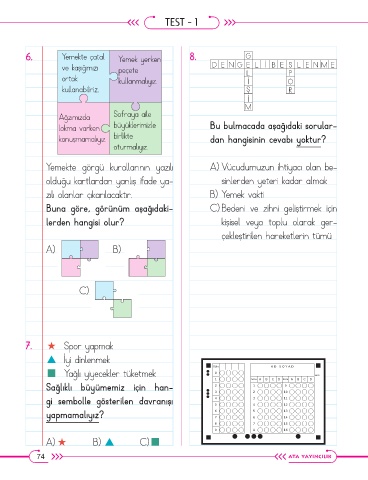 TEST - 1
6.
Yemekte çatal
ve kaşığımızı
ortak
kullanabiliriz.
Yemek yerken
peçete
kullanmalıyız.
Ağzımızda
lokma varken
konuşmamalıyız.
Sofraya aile
büyüklerimizle
birlikte
oturmalıyız.
Yemekte görgü kurallarının yazılı
olduğu kartlardan yanlış ifade ya-
zılı olanlar çıkarılacaktır.
Buna göre, görünüm aşağıdaki-
lerden hangisi olur?
A)
B)
C)
7.
★ Spor yapmak
▲ İyi dinlenmek
■ Yağlı yiyecekler tüketmek
Sağlıklı büyümemiz için han-
gi sembolle gösterilen davranışı
yapmamalıyız?
A) ★ B) ▲ C) ■
8.
G
DENGELİ BESLENME
L
İ
Ş
İ
M
P
O
R
Bu bulmacada aşağıdaki sorular-
dan hangisinin cevabı yoktur?
A) Vücudumuzun ihtiyacı olan be-
sinlerden yeteri kadar almak
B) Yemek vakti
C) Bedeni ve zihni geliştirmek için
kişisel veya toplu olarak ger-
çekleştirilen hareketlerin tümü
AD SOYAD
74
ATA YAYINCILIK